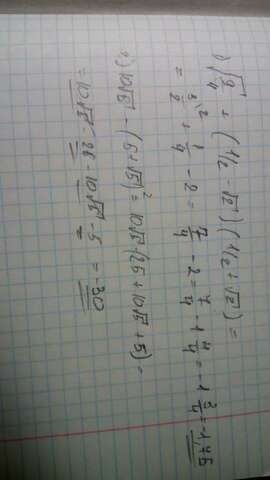 1) √9/4 + (1/2 - √2)(1/2 + √2) =
= 3/2 \2 + 1/4 - 2 = 7/4 - 2 = 7/4 - 1 4/4 = -1 3/4 = -1,75
2) 10√5 - (5+√5)² = 10√5 - (25 + 10√5 + 5) =
= 10√5 - 25 - 10√5 - 5 = -30